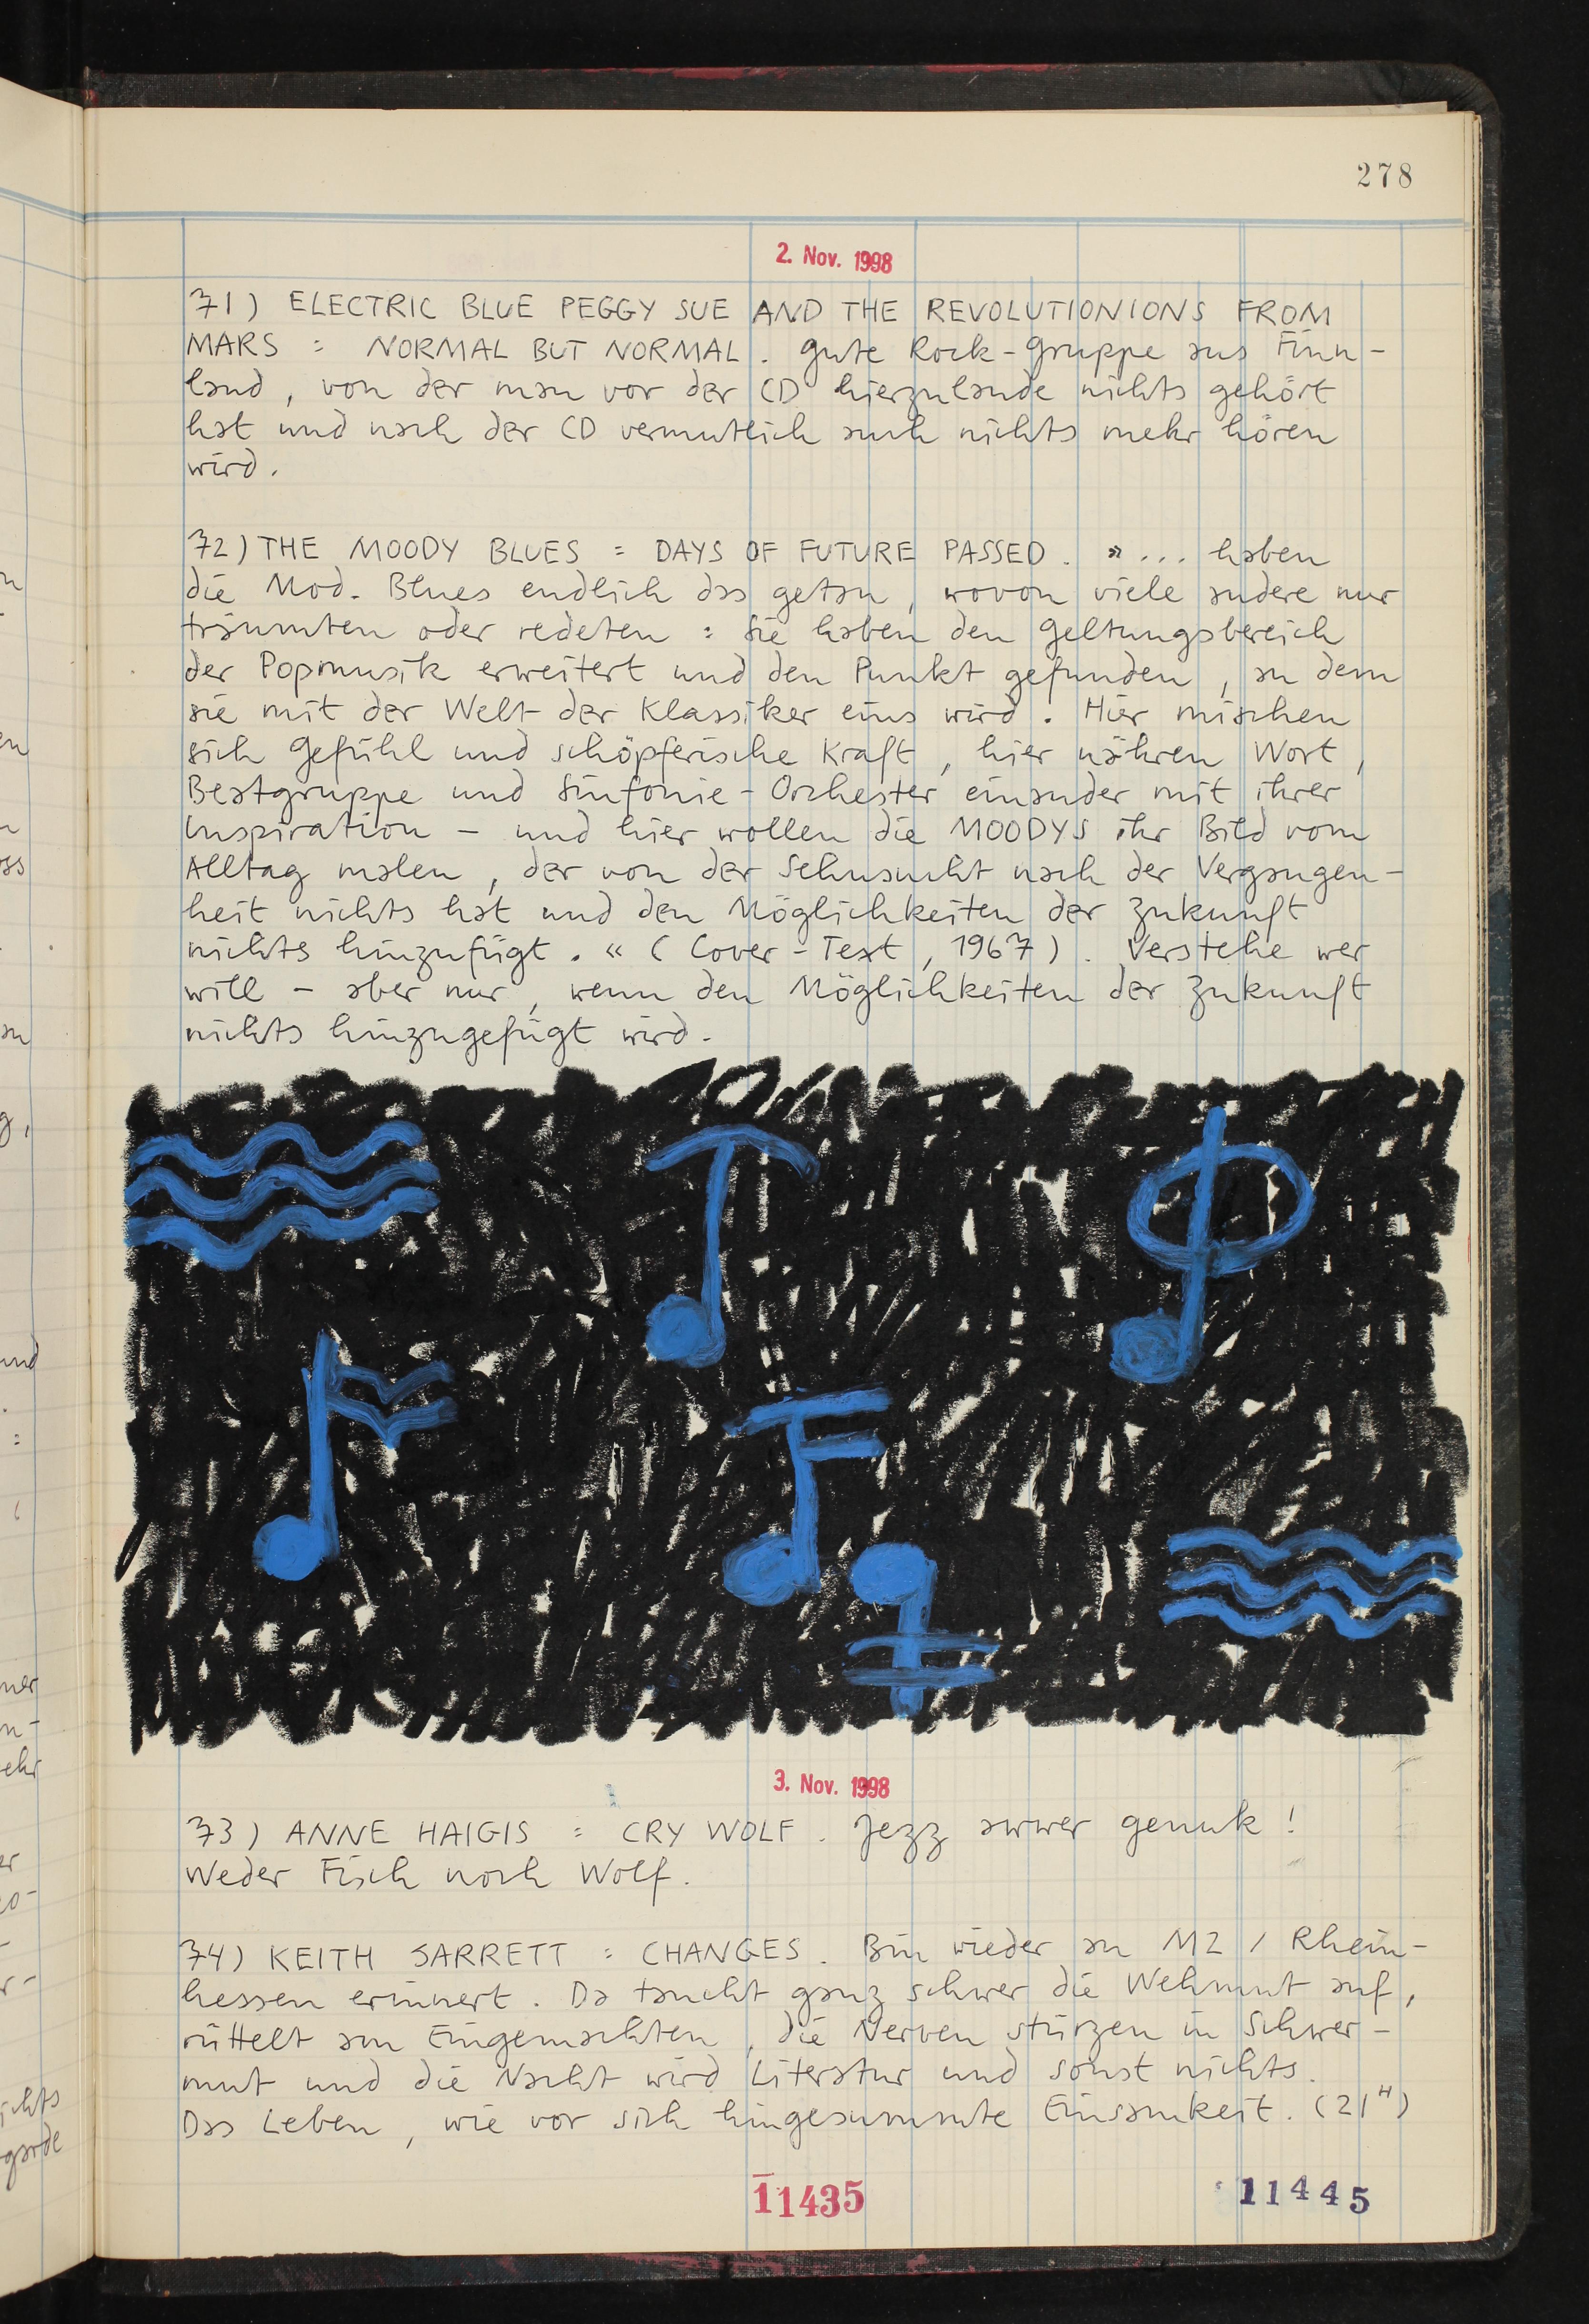 278
2. Nov. 1998
71) ELECTRIC BLUE PEGGY SUE AND THE REVOLUTIONIONS FROM
MARS : NORMAL BUT NORMAL. Gute Rock-Gruppe aus Finn-
land, von der man vor der CD hierzulande nichts gehört
hat und nach der CD vermutlich auch nichts mehr hören
wird.
72) THE MOODY BLUES : DAYS OF FUTURE PASSED. »... haben
die Mod. Blues endlich das getan, wovon viele andere nur
träumten oder redeten : Sie haben den Geltungsbereich
der Popmusik erweitert und den Punkt gefunden, an dem
sie mit der Welt der Klassiker eins wird. Hier mischen
sich Gefühl und schöpferische Kraft, hier nähren Wort,
Beatgruppe und Sinfonie-Orchester einander mit ihrer
Inspiration – und hier wollen die MOODYS ihr Bild vom
Alltag malen, der von der Sehnsucht nach der Vergangen-
heit nichts hat und den Möglichkeiten der Zukunft
nichts hinzufügt.« (Cover-Text, 1967). Verstehe wer
will – aber nur, wenn den Möglichkeiten der Zukunft
nichts hinzugefügt wird.
3. Nov. 1998
73) ANNE HAIGIS : CRY WOLF. Jezz awwer genuk!
Weder Fisch noch Wolf.
74) KEITH JARRETT : CHANGES. Bin wieder an M2 / Rhein-
hessen erinnert. Da taucht ganz schwer die Wehmut auf,
rüttelt am Eingemachten, die Nerven stürzen in Schwer-
mut und die Nacht wird Literatur und sonst nichts.
Das Leben, wie vor sich hingesummte Einsamkeit. (21H)
11435
11445